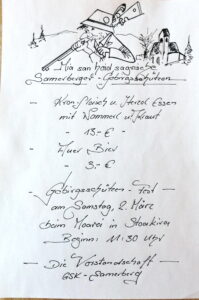 Mia san hoid sagrische
Samerberger-Gebirgsschützen
- und Essen
mit Wammerl u. Kraut
- 13.-€ -
- Bier -
- 3.-€ -
- Gebirgsschützen-Fest -
am Samstag, 2. März
beim Maurer in
Beginn: 11:30 Uhr
- Die Vorstandschaft -
GSK-Samerberg